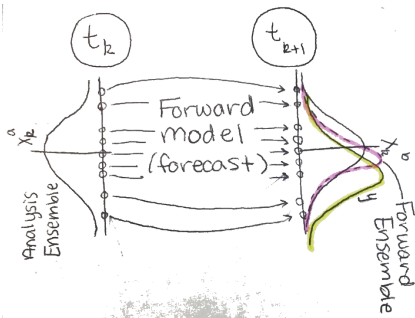 t_k
t_k+1
Forward
model
(forecast)
x_k^a
Analysis
Ensemble
x_k^b
y
Forward
Ensemble